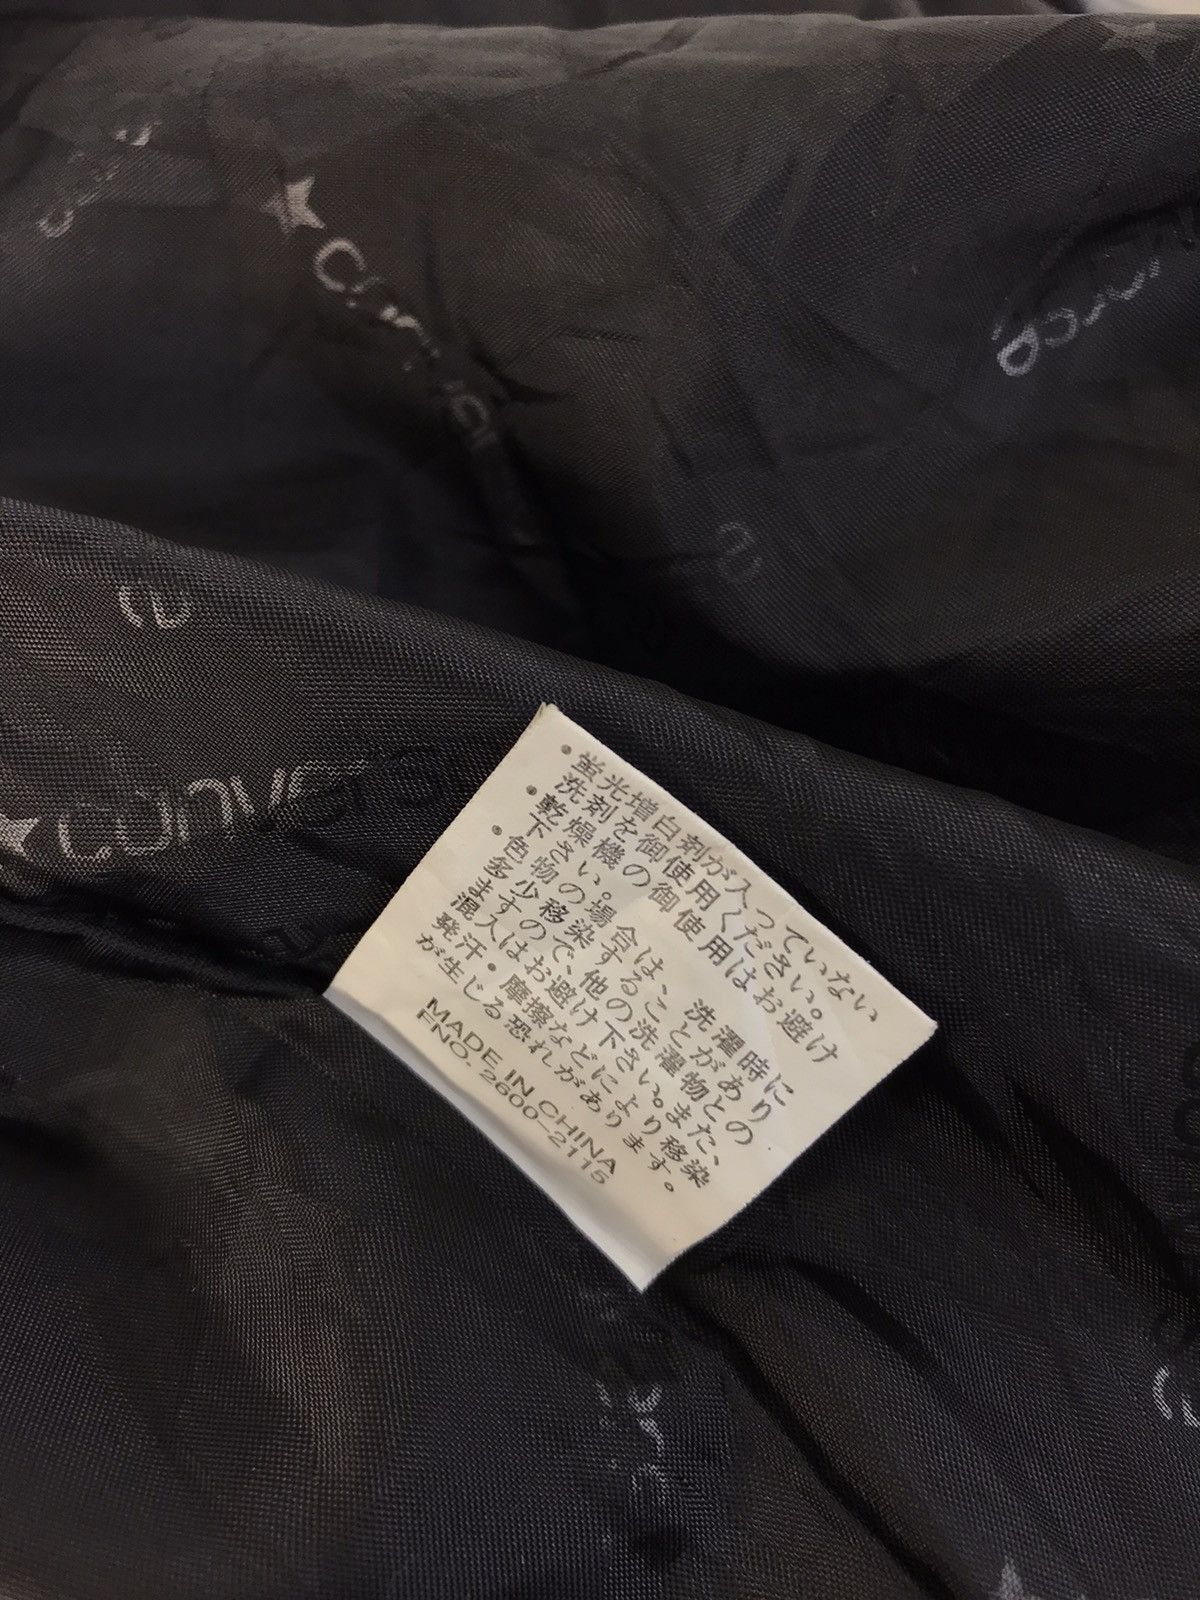 converse
・蛍光増白剤が入っていない
洗剤を御使用ください。
・乾燥機の御使用はお避け
下さい。
・色物の場合は、洗濯時に
多少移染することがあり
ますので、他の洗濯物との
混入はお避け下さい。また、
発汗・摩擦などにより移染
が生じる恐れがあります。
MADE IN CHINA
FNO.2600-2115